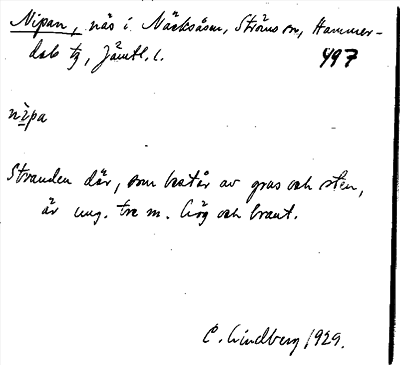 Nipan, näs i Näcksåsen, Ströms sn, Hammer-
dals tg, Jämtl. l. 497
nìpa
Stranden där, som består av grus och sten,
är ung. tre m. hög och brant.
C. Lindberg 1929.